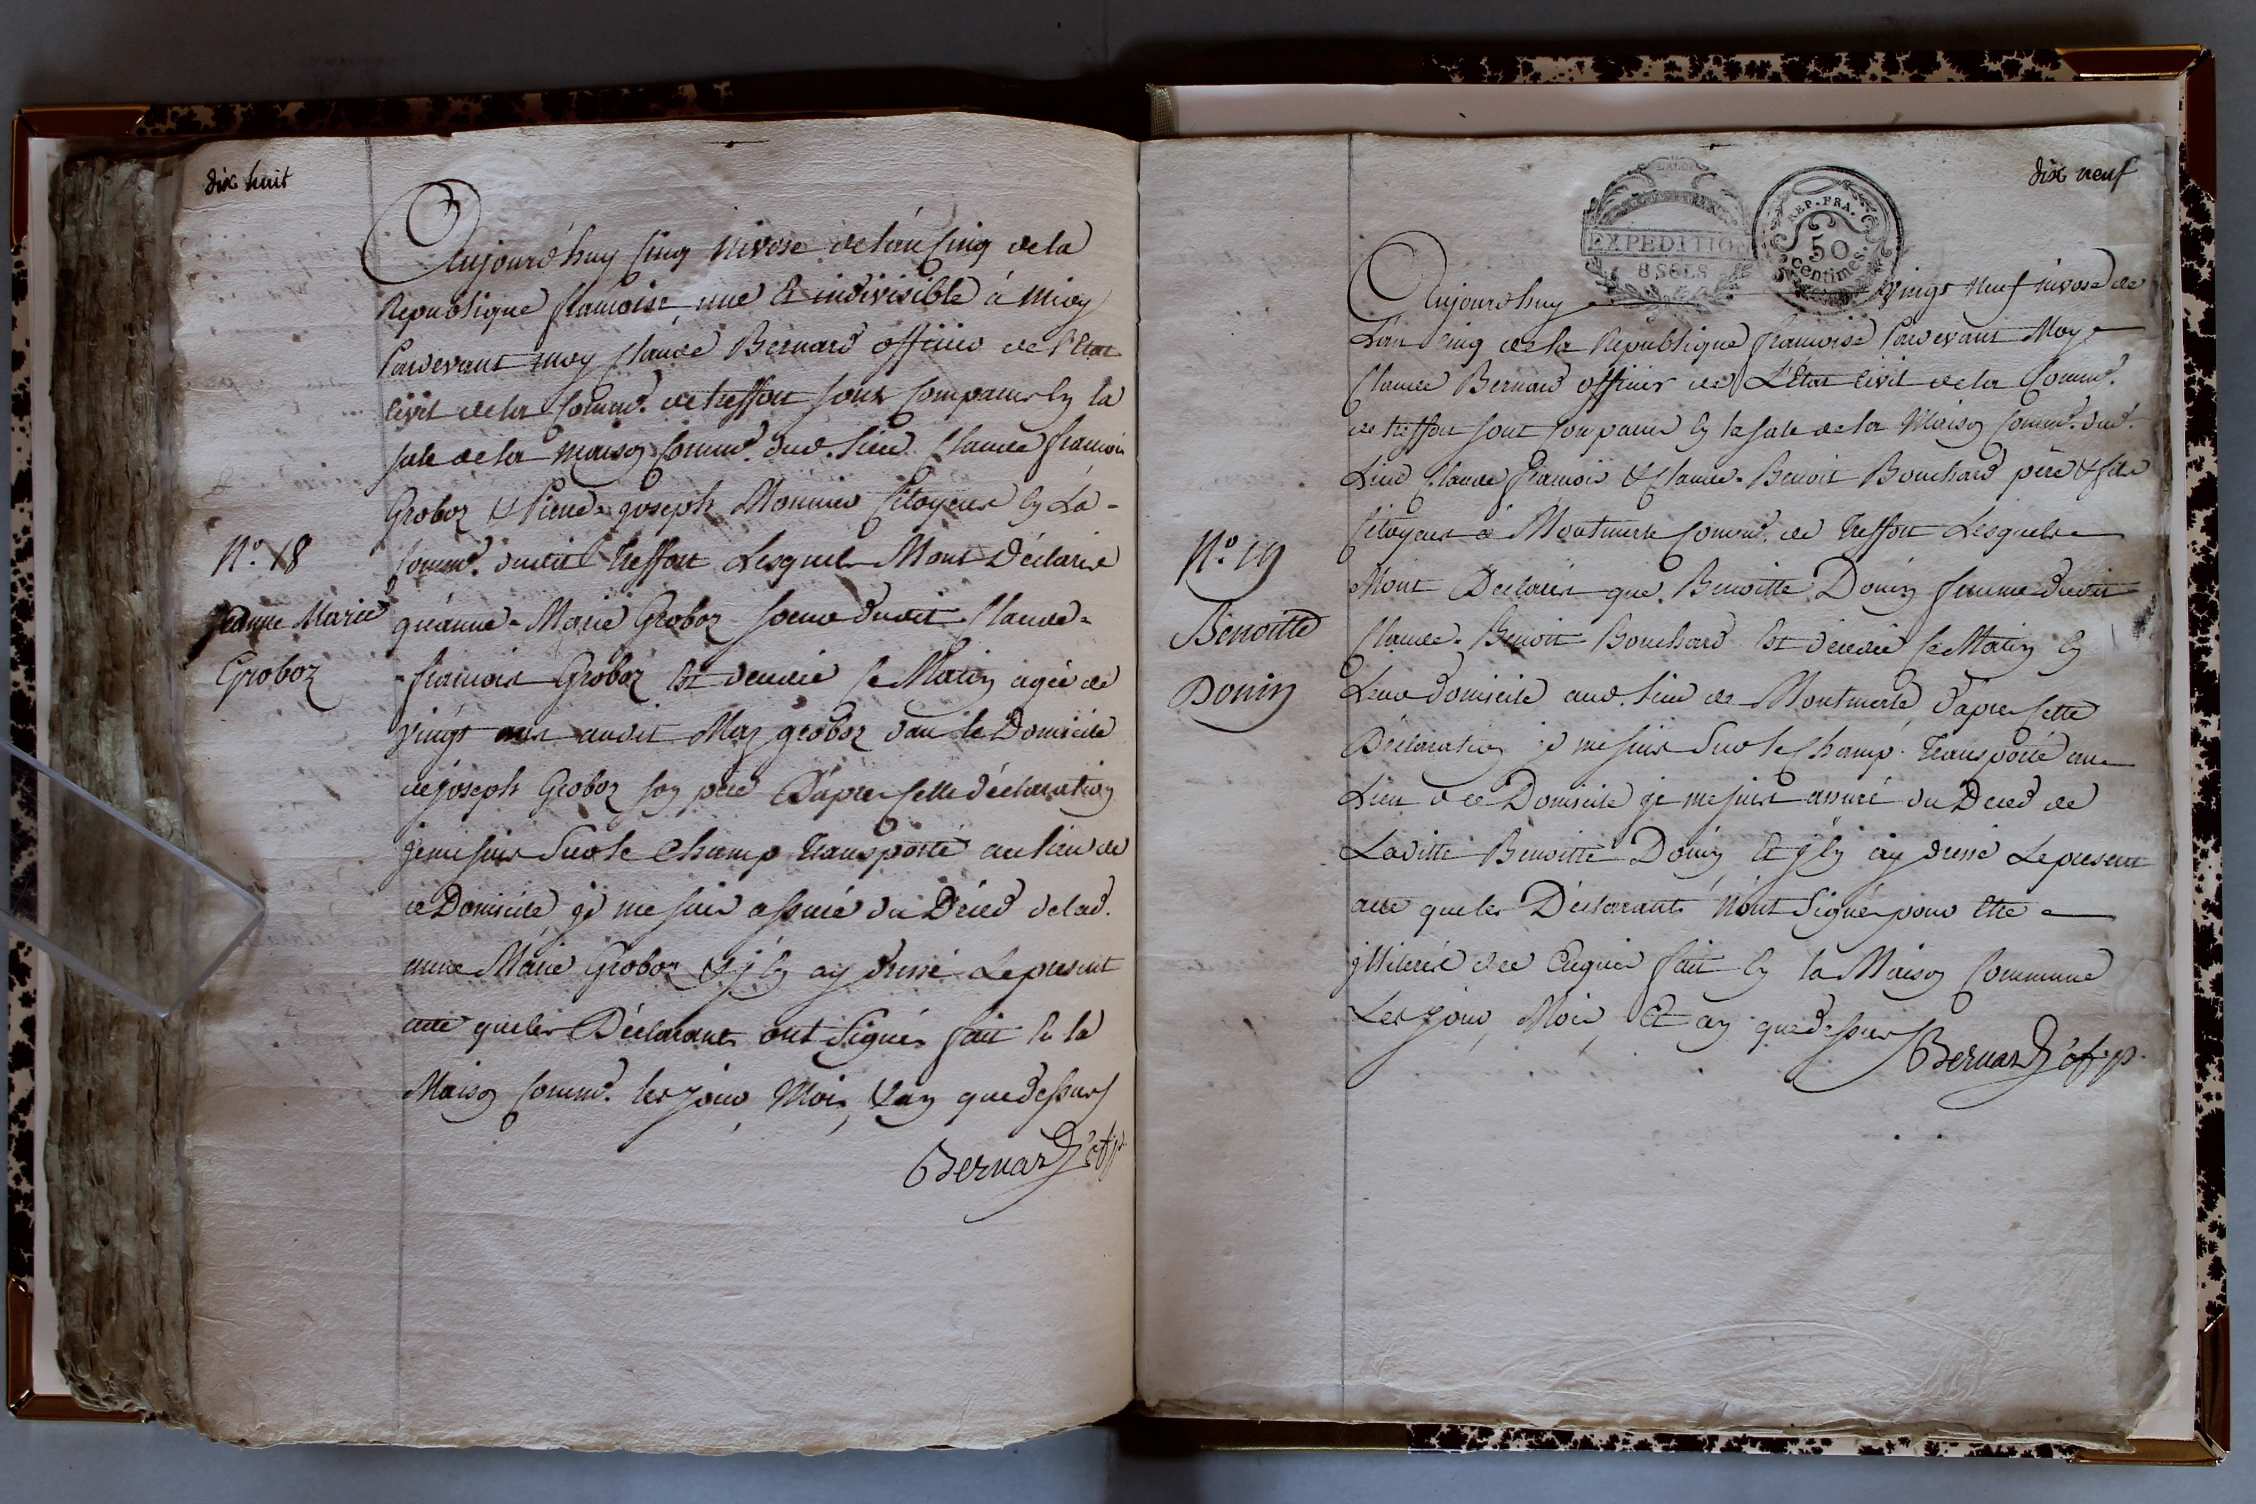 dix huit
Aujourd'huy Cinq nivose de l'an Cinq de la
Republique francoise, une & indivisible à Midy
Pardevant moy Claude Bernard officier de l'Etat
Civil de la Comm.e de treffort sont Comparus En la
sale de la maison Comm.e dud. Lieu Claude francois
Groboz & Pierre-joseph Monnier Citoyens En La-
Comm.e dudit treffort Lesquels M'ont Déclarié
N.o 18
Jeanne Marie
Groboz
qu'anne-Marie Groboz soeur dudit Claude-
francois Groboz Est deceuée Ce Matin agée de
vingt ans audit Maz groboz dans le Domicile
de joseph Groboz son père D'apres Cette déclaration
je me suis Sur le Champ transporté au lieu de
ce Domicile je me suis assuré du Décéd de lad.
anne Marie Groboz & j'En ay dressé Le present
acte que les Déclarants ont Signés fait En la
Maison Comm.e les jour, Mois, & an que dessus
Bernard off.p.
dix neuf
EXPEDITION
8 SOLS
REP. FRA.
50
Centimes.
Aujourd'huy vingt neuf nivose de
L'an Cinq de la Republique francoise Pardevant Moy
Claude Bernard officier de L'Etat Civil de la Comm.e
de treffort sont Comparus En la sale de la Maison Comm.e dud.
Lieu Claude francois & Claude-Benoit Bouchard père & fils
Citoyens à Montmerle Comm.e de treffort Lesquels
N.o 19
Benoitte
Donin
M'ont Declarés que Benoitte Donin femme dudit
Claude-Benoit Bouchard Est décedée Ce Matin En
Leur domicile aud. Lieu de Montmerle, d'apres Cette
Déclaration je me suis Sur le Champ transporté au
Lieu de ce Domicile je me suis assuré du Décéd de
Laditte Benoitte Donin Et j'En ay dressé Le present
acte que les Déclarants N'ont Signés pour Etre
jlliterés de ce Enquis fait En la Maison Commune
Les jour, Mois, Et an que dessus
Bernard off.p.